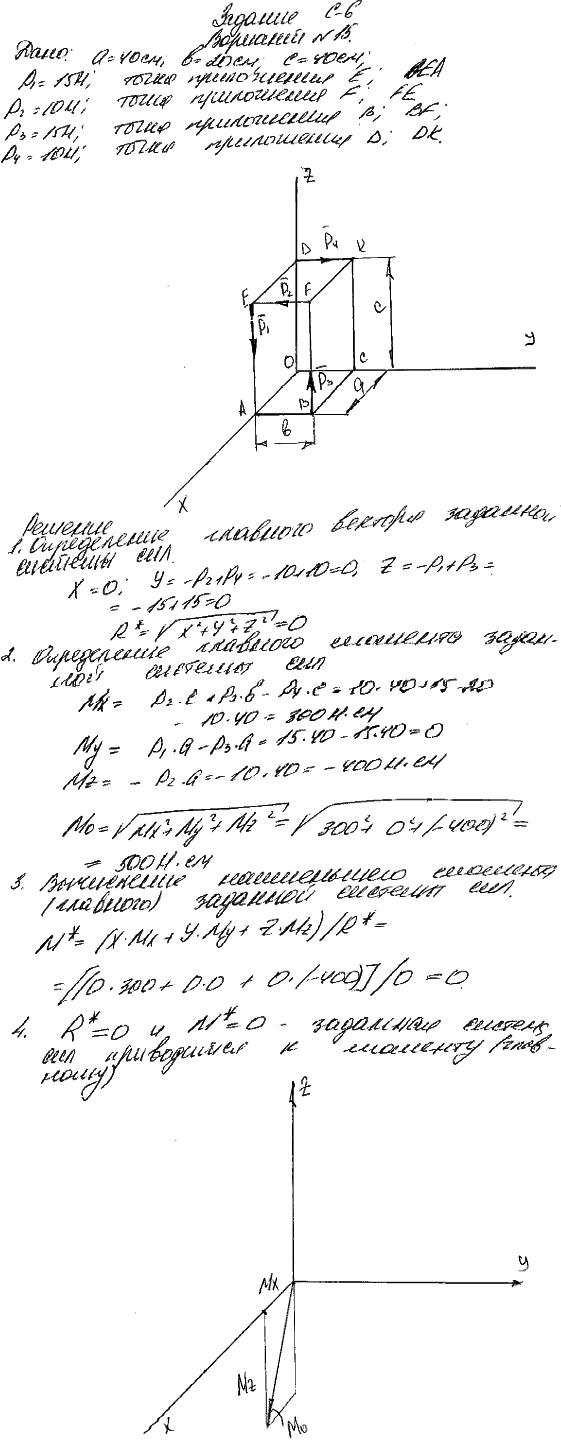 Задание С-6
Вариант N 15.
Дано: a=40см, в=20см; c=40см;
P₁=15Н; точка приложения E; EA
P₂=10Н; точка приложения F; FE.
P₃=15Н; точка приложения B; BF;
P₄=10Н; точка приложения D; DK.
Z
D P̄₄ K
E P̄₂ F
P̄₁ C
O P̄₃ C У
a
A B
в
X
Решение
1. Определение главного вектора заданной
системы сил.
X=0; У=-P₂+P₄=-10+10=0; Z=-P₁+P₃=
=-15+15=0
R*=√X²+У²+Z²=0
2. Определение главного момента задан-
ной системы сил
Mx= P₂·c+P₃·в-P₄·c=10·40+15·20
-10·40=300Н.см
My= P₁·a-P₃·a=15·40-15·40=0
Mz= -P₂·a=-10·40=-400Н.см
M₀=√Mx²+My²+Mz²=√300²+0²+(-400)²=
=500Н.см
3. Вычисление наименьшего момента
(главного) заданной системы сил.
M*=(X·Mx+У·My+Z·Mz)/R*=
=[(0·300+0·0+0·(-400)]/0=0.
4. R*=0 и M*=0 - заданная система
сил приводится к моменту (глав-
ному)
Z
Mx У
Mz
X M₀